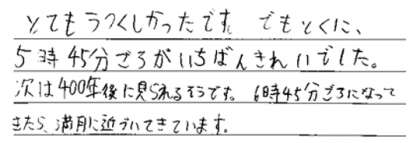 とてもうつくしかったです。でもとくに、
5時45分ごろがいちばんきれいでした。
次は400年後に見られるそうです。6時45分ごろになって
きたら、満月に近づいてきています。